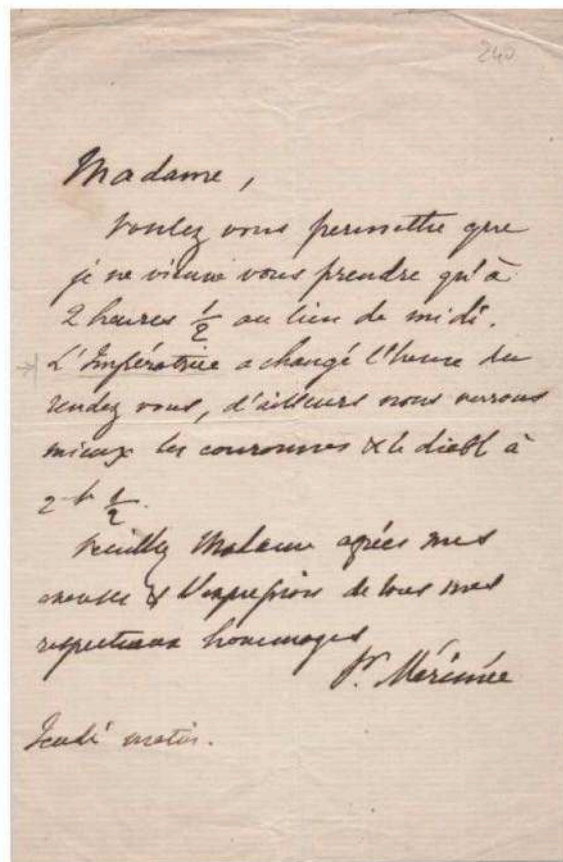 240
Madame,
Voulez vous permettre que
je ne vienne vous prendre qu'à
2 heures ½ au lieu de midi.
L'Impératrice a changé l'heure du
rendez vous, d'ailleurs nous verrons
mieux les couronnes & le diable à
2 h ½.
Veuillez Madame agréer mes
excuses & l'expression de tous mes
respectueux hommages
Pr. Mérimée
Jeudi matin.